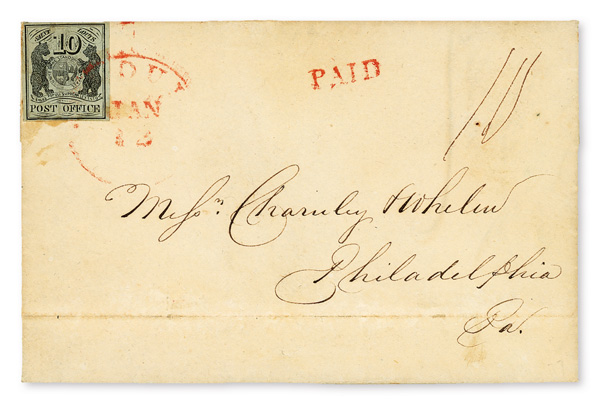 SAINT LOUIS
10
POST OFFICE
JAN
12
PAID
10
Messrs. Charnley & Whelen
Philadelphia
Pa.